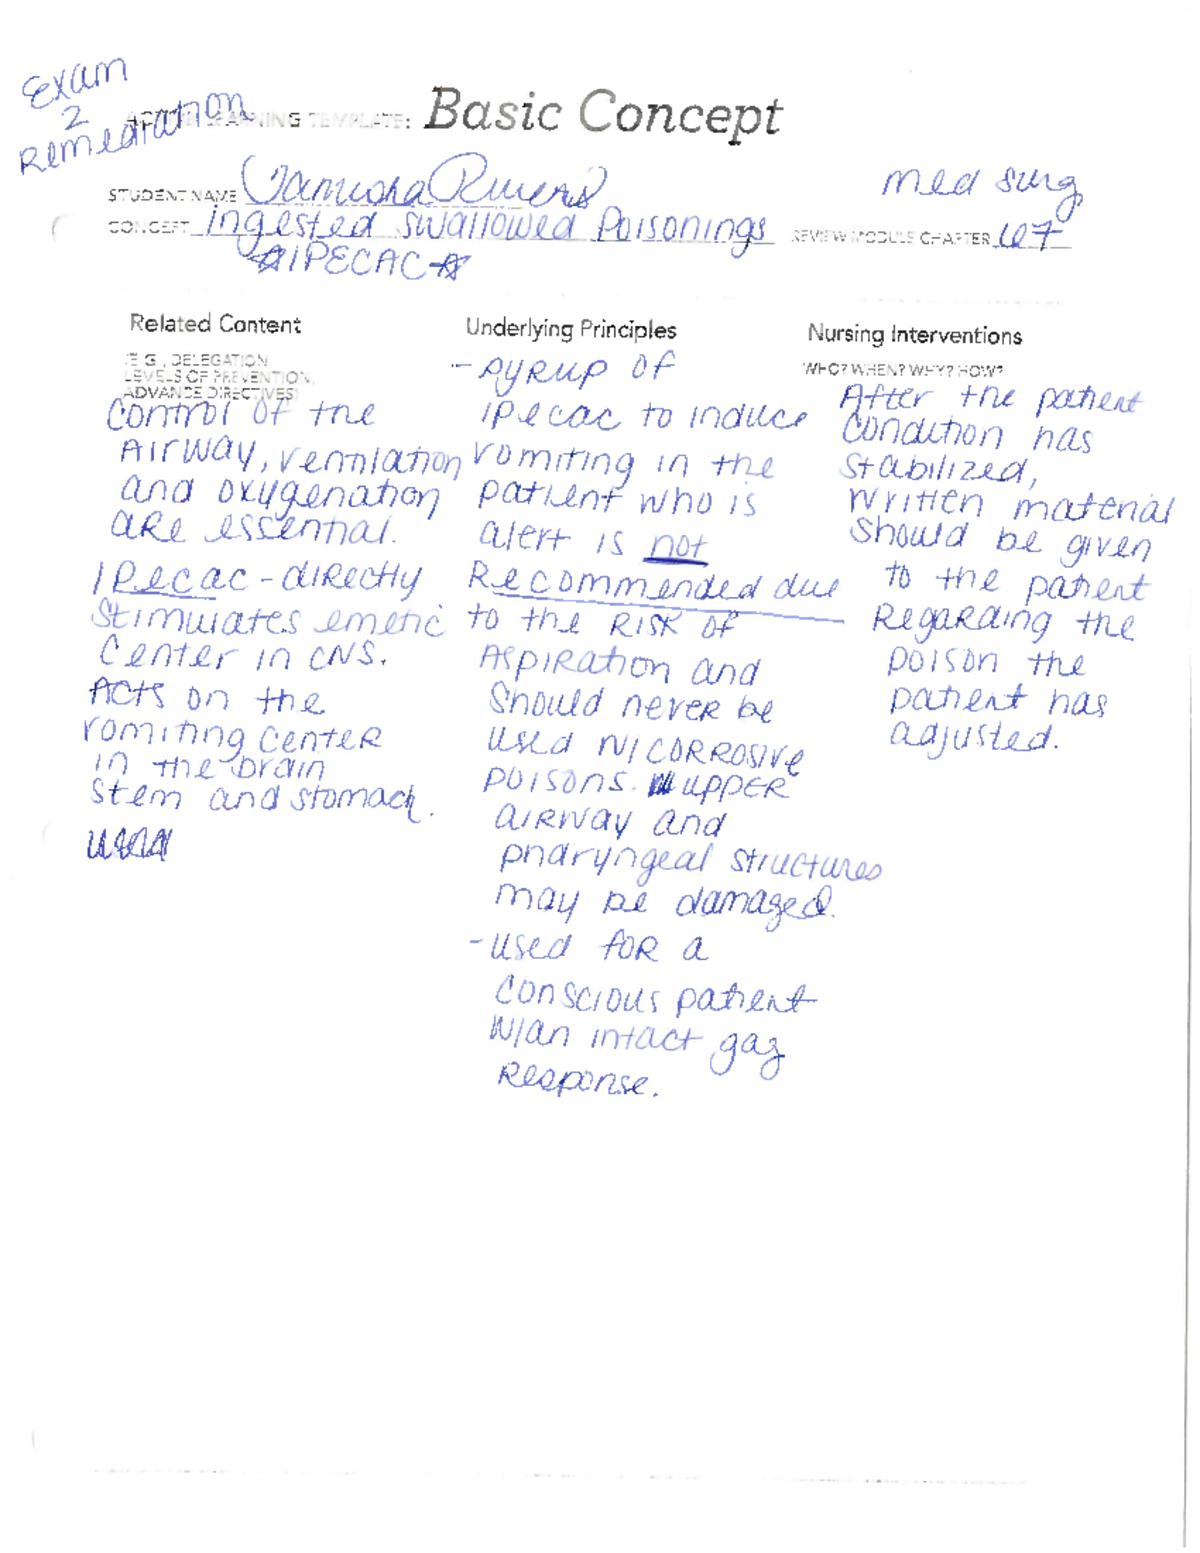 Exam
2
Remediation
ACTIVE LEARNING TEMPLATE: Basic Concept
STUDENT NAME
med surg
CONCEPT ingested swallowed Poisonings REVIEW MODULE CHAPTER 67
☆IPECAC☆
Related Content
(E.G., DELEGATION,
LEVELS OF PREVENTION,
ADVANCE DIRECTIVES)
control of the
AIRWAY, ventilation
and oxygenation
are essential.
IPecac - directly
Stimulates emetic
Center in CNS.
Acts on the
vomiting center
in the brain
stem and stomach.
Underlying Principles
- syrup of
ipecac to induce
vomiting in the
patient who is
alert is not
Recommended due
to the RISK OF
Aspiration and
Should never be
used W/CORROSIVE
poisons. UPPER
airway and
pharyngeal structures
may be damaged.
- used for a
conscious patient
W/an intact gag
Response.
Nursing Interventions
WHO? WHEN? WHY? HOW?
After the patient
condition has
stabilized,
written material
should be given
to the patient
Regarding the
poison the
patient has
adjusted.